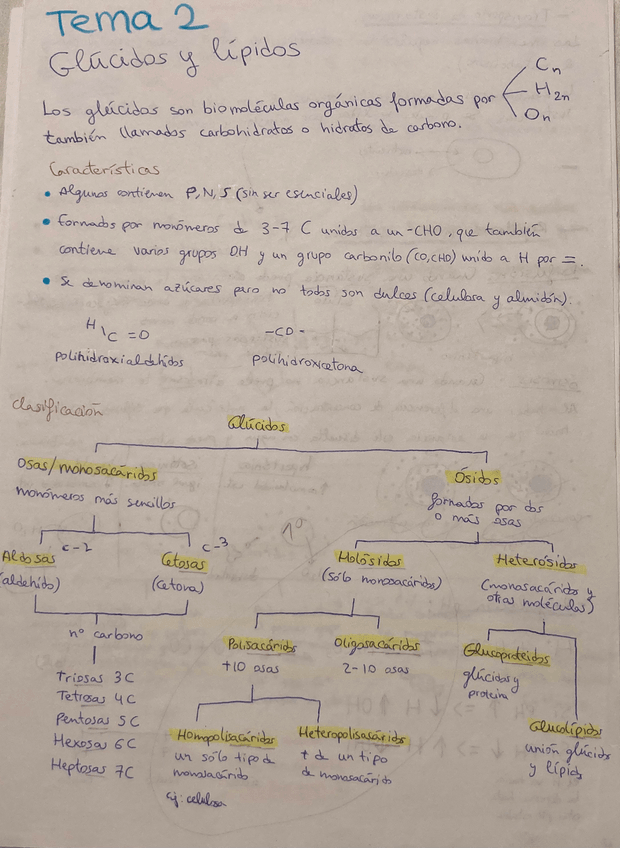 Tema 2
Glúcidos y lípidos
Los glúcidos son biomoléculas orgánicas formadas por
Cn
H2n
On
también llamados carbohidratos o hidratos de carbono.
Características
• Algunos contienen P, N, S (sin ser esenciales)
• Formados por monómeros de 3-7 C unidos a un -CHO, que también
contiene varios grupos OH y un grupo carbonilo (CO, CHO) unido a H por =.
• Se denominan azúcares pero no todos son dulces (celulosa y almidón).
H\C=O
-CO-
polihidroxialdehídos
polihidroxicetona
Clasificación
Glúcidos
Osas/monosacáridos
monómeros más sencillos
Ósidos
formados por dos
o más osas
Aldosas
c-2
(aldehído)
Cetosas
c-3
(cetona)
nº carbono
Triosas 3C
Tetrosas 4C
Pentosas 5C
Hexosas 6C
Heptosas 7C
1º
Holósidos
(sólo monosacáridos)
Heterósidos
(monosacáridos y
otras moléculas)
Polisacáridos
+10 osas
Oligosacáridos
2-10 osas
Glucoproteidos
glúcidos y
proteína
Glucolípidos
unión glúcido
y lípido
Homopolisacáridos
un sólo tipo de
monosacárido
ej: celulosa
Heteropolisacáridos
+ de un tipo
de monosacárido